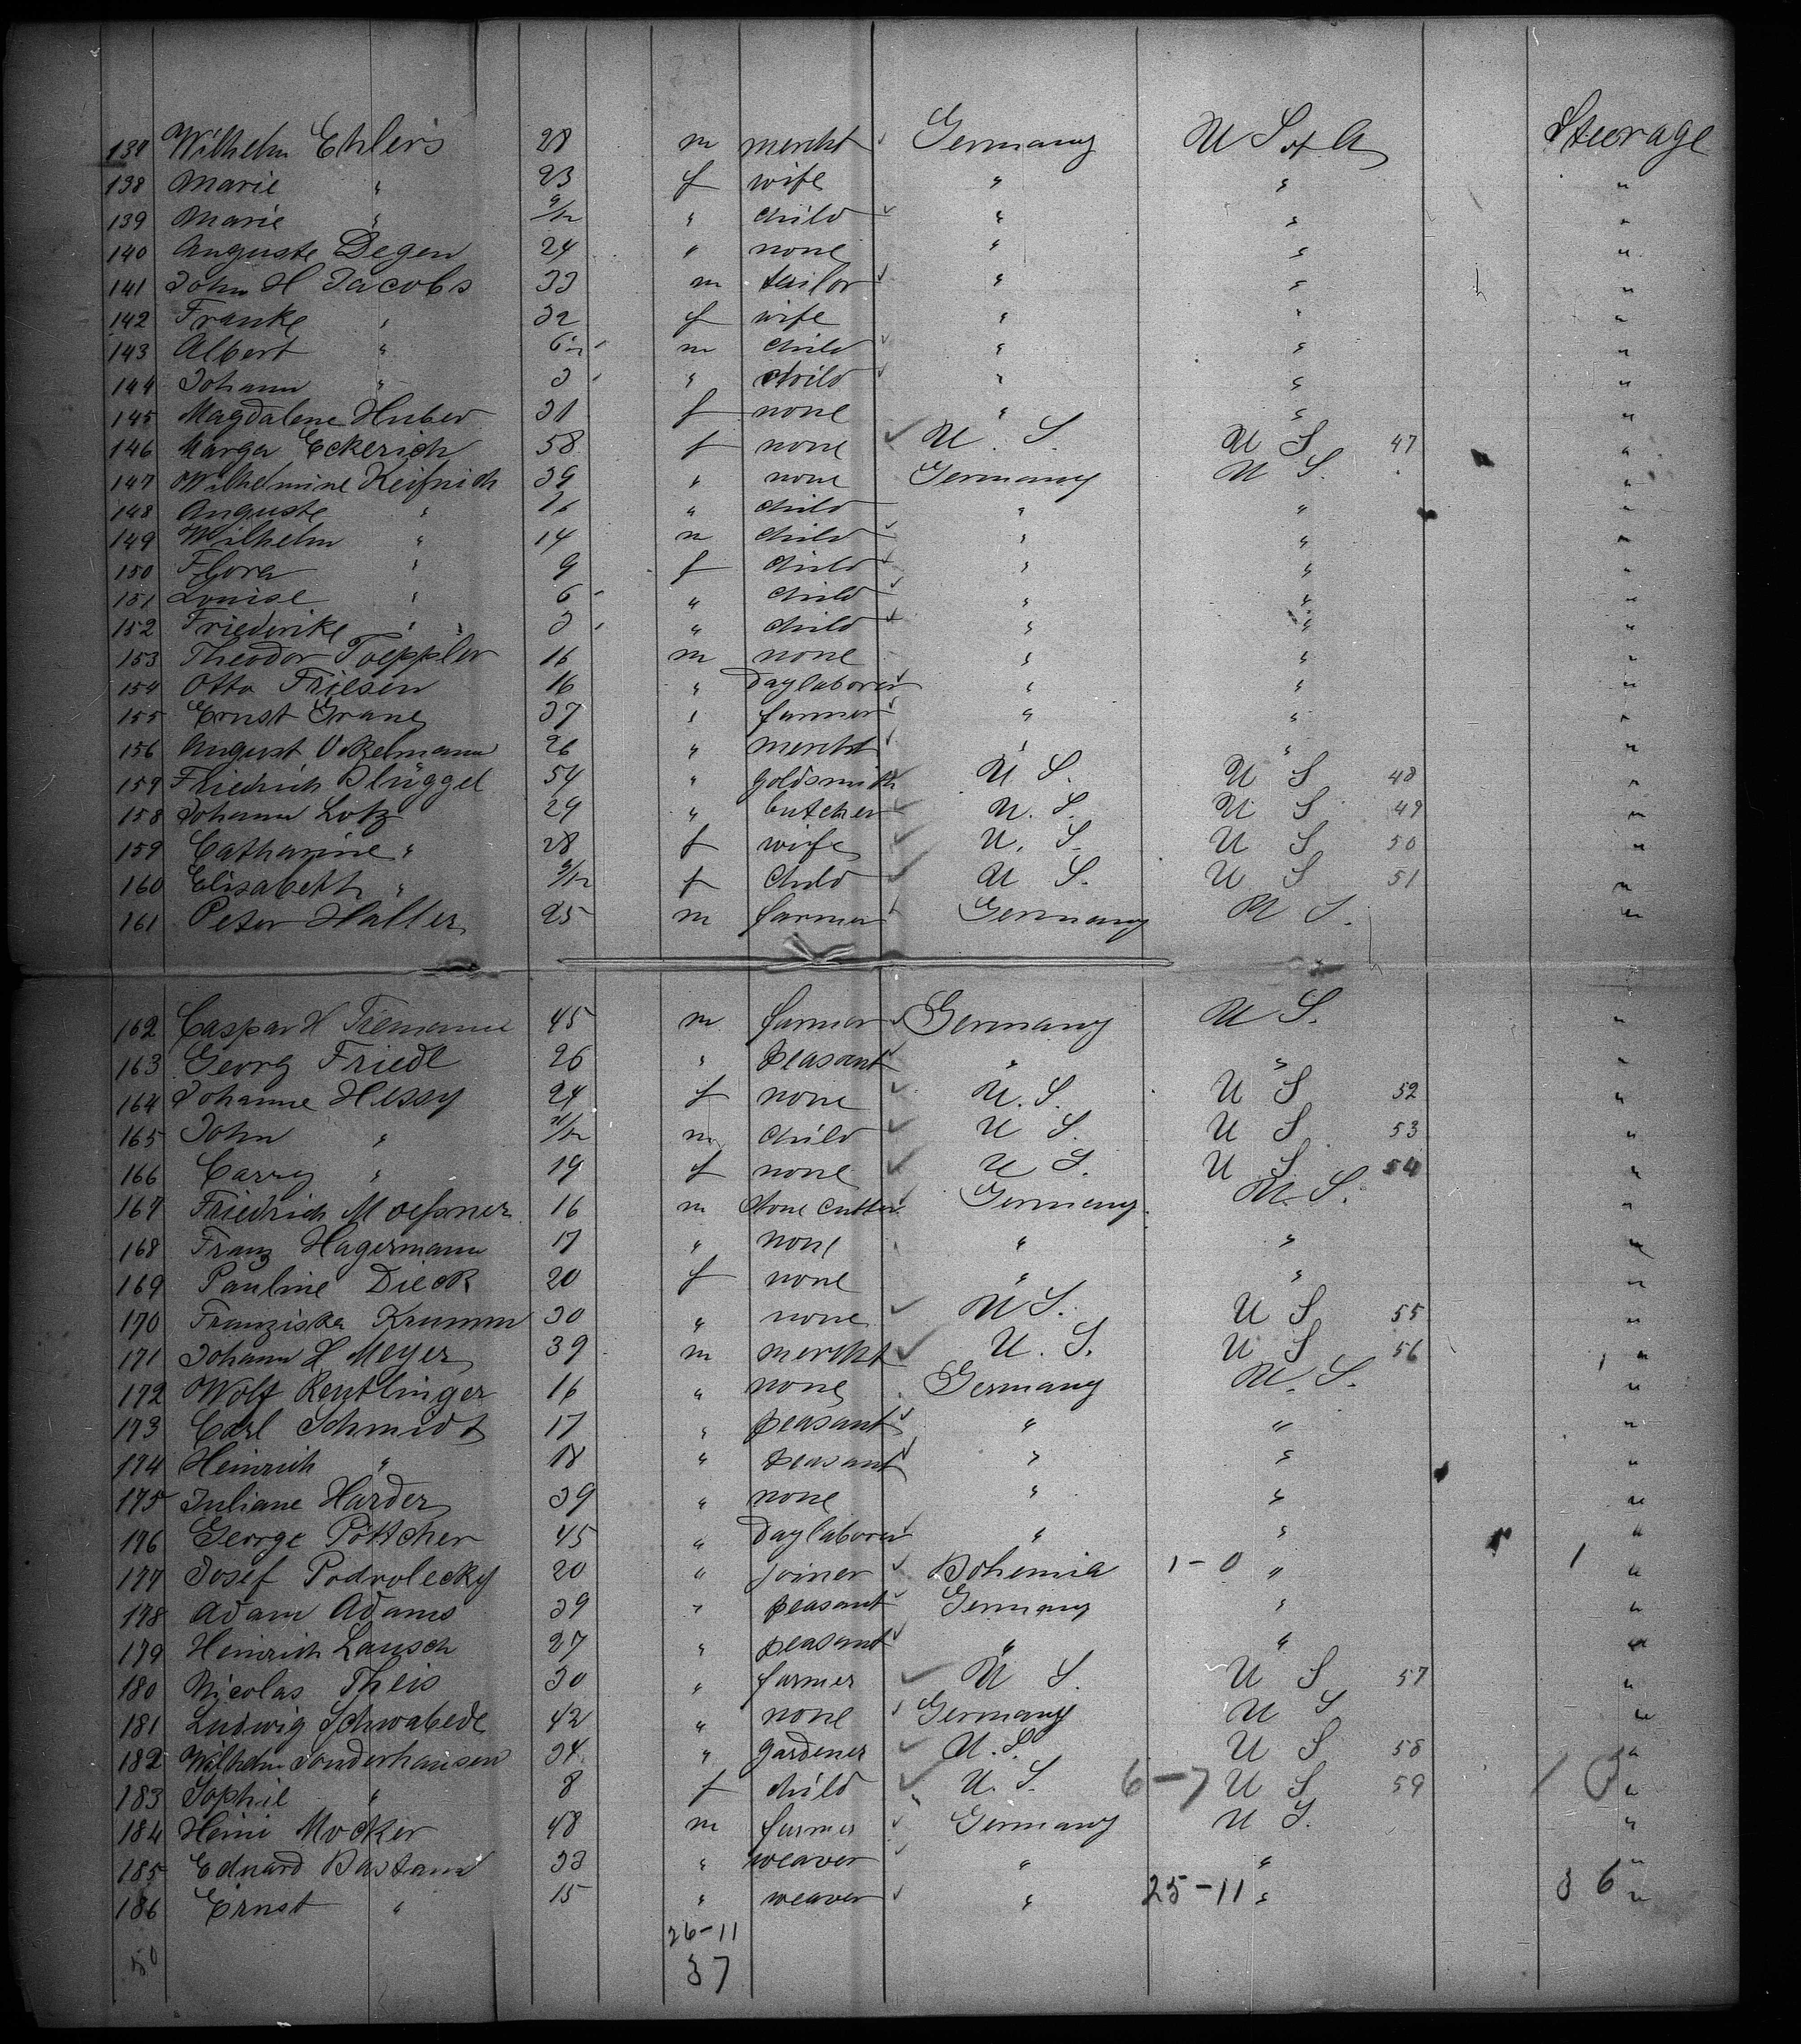 137 Wilhelm Ehlers 28 m mercht Germany U S of A Steerage
138 Marie " 23 f wife " " "
139 Marie " 9/12 " child " " "
140 Auguste Degen 24 " none " " "
141 John H Jacobs 33 m tailor " " "
142 Franke " 32 f wife " " "
143 Albert " m child " " "
144 Johann " 3 " child " " "
145 Magdalene Huber 31 f none " " "
146 Marga Eckerich 58 f none U. S. U S 47 "
147 Wilhelmine 39 " none Germany U S. "
148 Auguste " 16 " child " " "
149 Wilhelm " 14 m child " " "
150 Flora " 9 f child " " "
151 Louise " 6 " child " " "
152 Friederike " 3 " child " " "
153 Theodor Toeppler 16 m none " " "
154 Otto Friesen 16 " Daylaborer " " "
155 Ernst Grane 37 " farmer " " "
156 August 26 " mercht " " "
159 Friedrich Pflüggel 54 " goldsmith U S. U S 48 "
158 Johann Lotz 29 " butcher U. S. U S 49 "
159 Catharine " 28 f wife U. S. U S 50 "
160 Elisabeth " 9/12 f child U S. U S 51 "
161 Peter Haller 25 m farmer Germany U S. "
162 Caspar H Tiemann 45 m farmer Germany U S. "
163 Georg Friedl 26 " peasant " " "
164 Johanne Hessy 24 f none U. S. U S 52 "
165 John " 11/12 m child U S. U S 53 "
166 Carry " 19 f none U S. U S 54 "
167 Friedrich Moeßner 16 m Stone Cutter Germany U. S. "
168 Franz Hagermann 17 " none " " "
169 Pauline Dieck 20 f none " " "
170 Franziska Krumm 30 " none U S. U S 55 "
171 Johann H Meyer 39 m mercht U. S. U S 56 "
172 Wolf Reutlinger 16 " none Germany U. S. "
173 Carl Schmidt 17 " peasant " " "
174 Heinrich " 18 " peasant " " "
175 Juliane Harder 39 " none " " "
176 George Pöttcher 45 " Daylaborer " " "
177 Josef Podrolecky 20 " joiner Bohemia 1-0 " 1 "
178 Adam Adams 39 " peasant Germany " "
179 Heinrich Lausch 27 " peasant " " "
180 Nicolas Theis 30 " farmer U S. U S 57 "
181 Ludwig Schwabede 42 " none Germany U S "
182 Wilhelm Sonderhausen 34 " gardener U. S. U S 58 "
183 Sophie " 8 f child U. S. 6-7 U S 59 1 "
184 Heini Mocker 48 m farmer Germany U S. "
185 Eduard Bastam 33 " weaver " " "
186 Ernst " 15 " weaver " 25-11 " 36 "
26-11
50 37